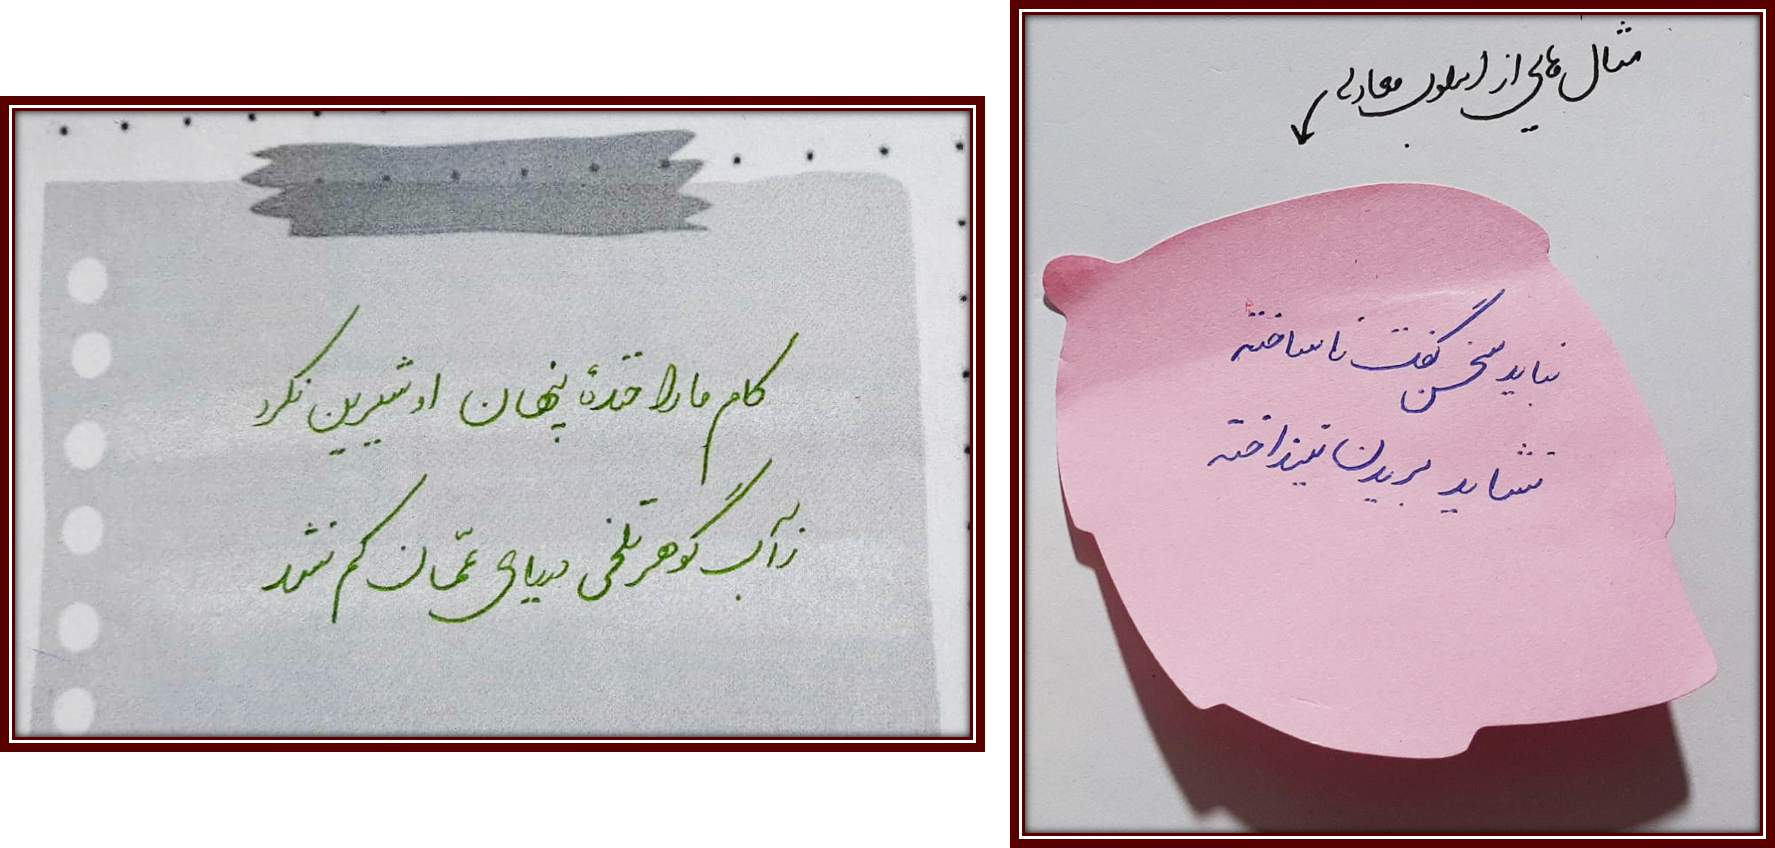 مثال هایی از اسلوب معادله
نباید سخن گفت ناساخته
نشاید بریدن نینداخته
کام ما را خندهٔ پنهان او شیرین نکرد
ز آب گوهر تلخی دریای عمّان کم نشد